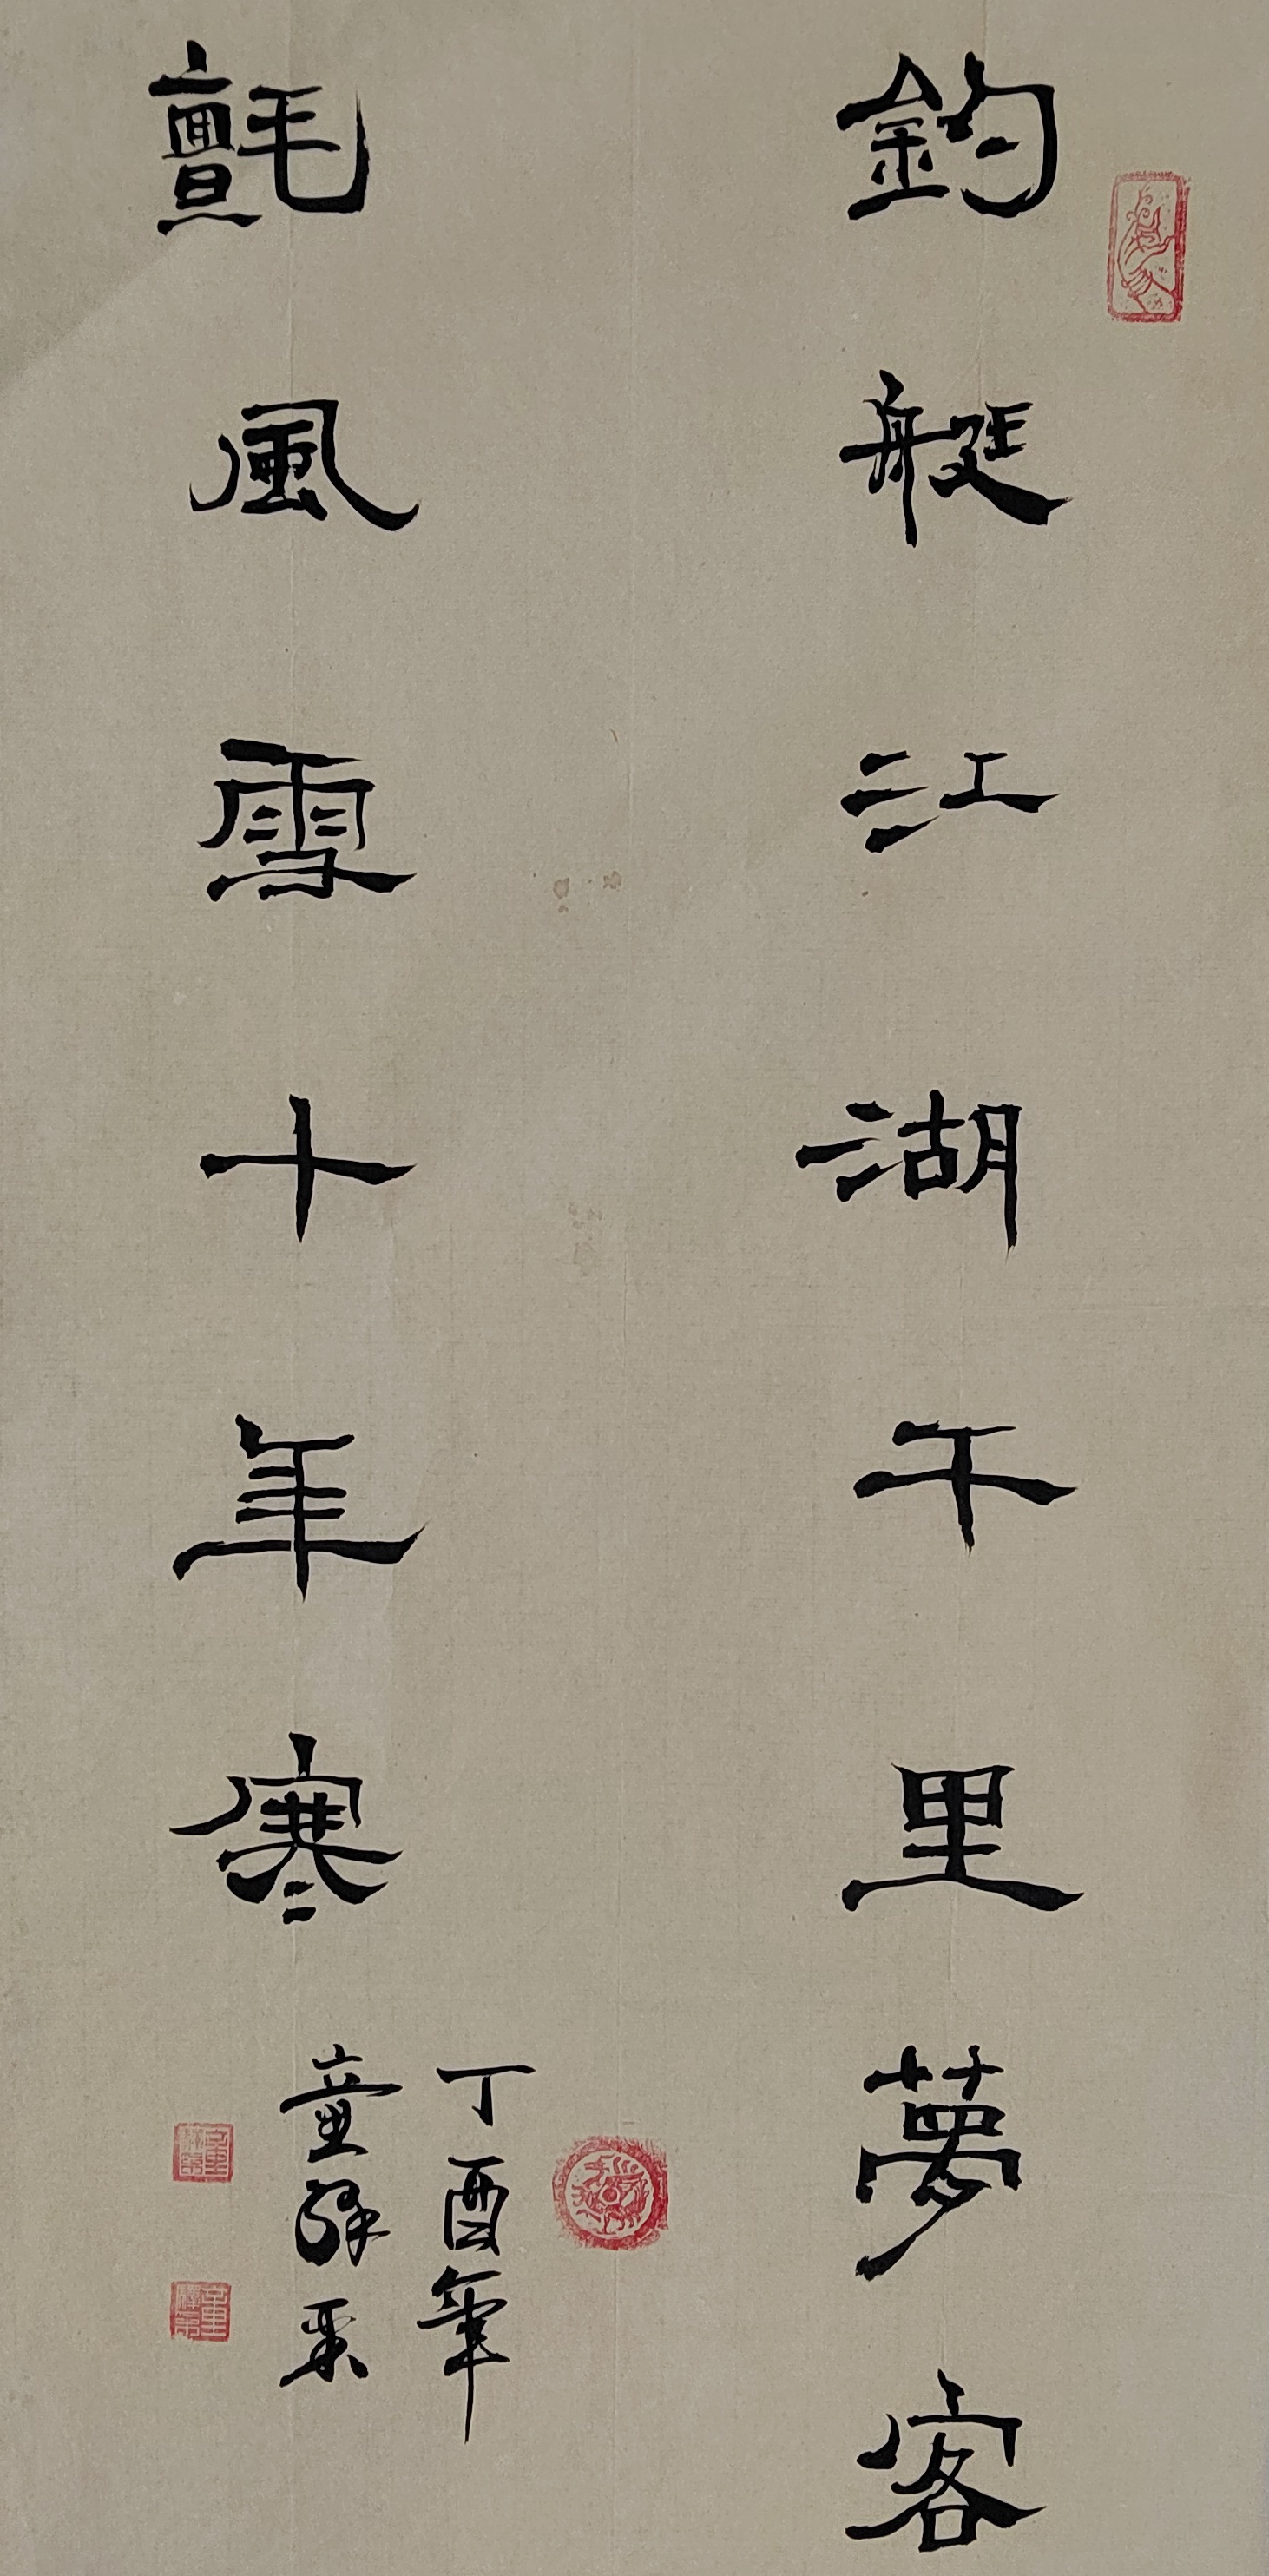 釣艇江湖千里夢客
氈風雪十年寒
丁酉年
童